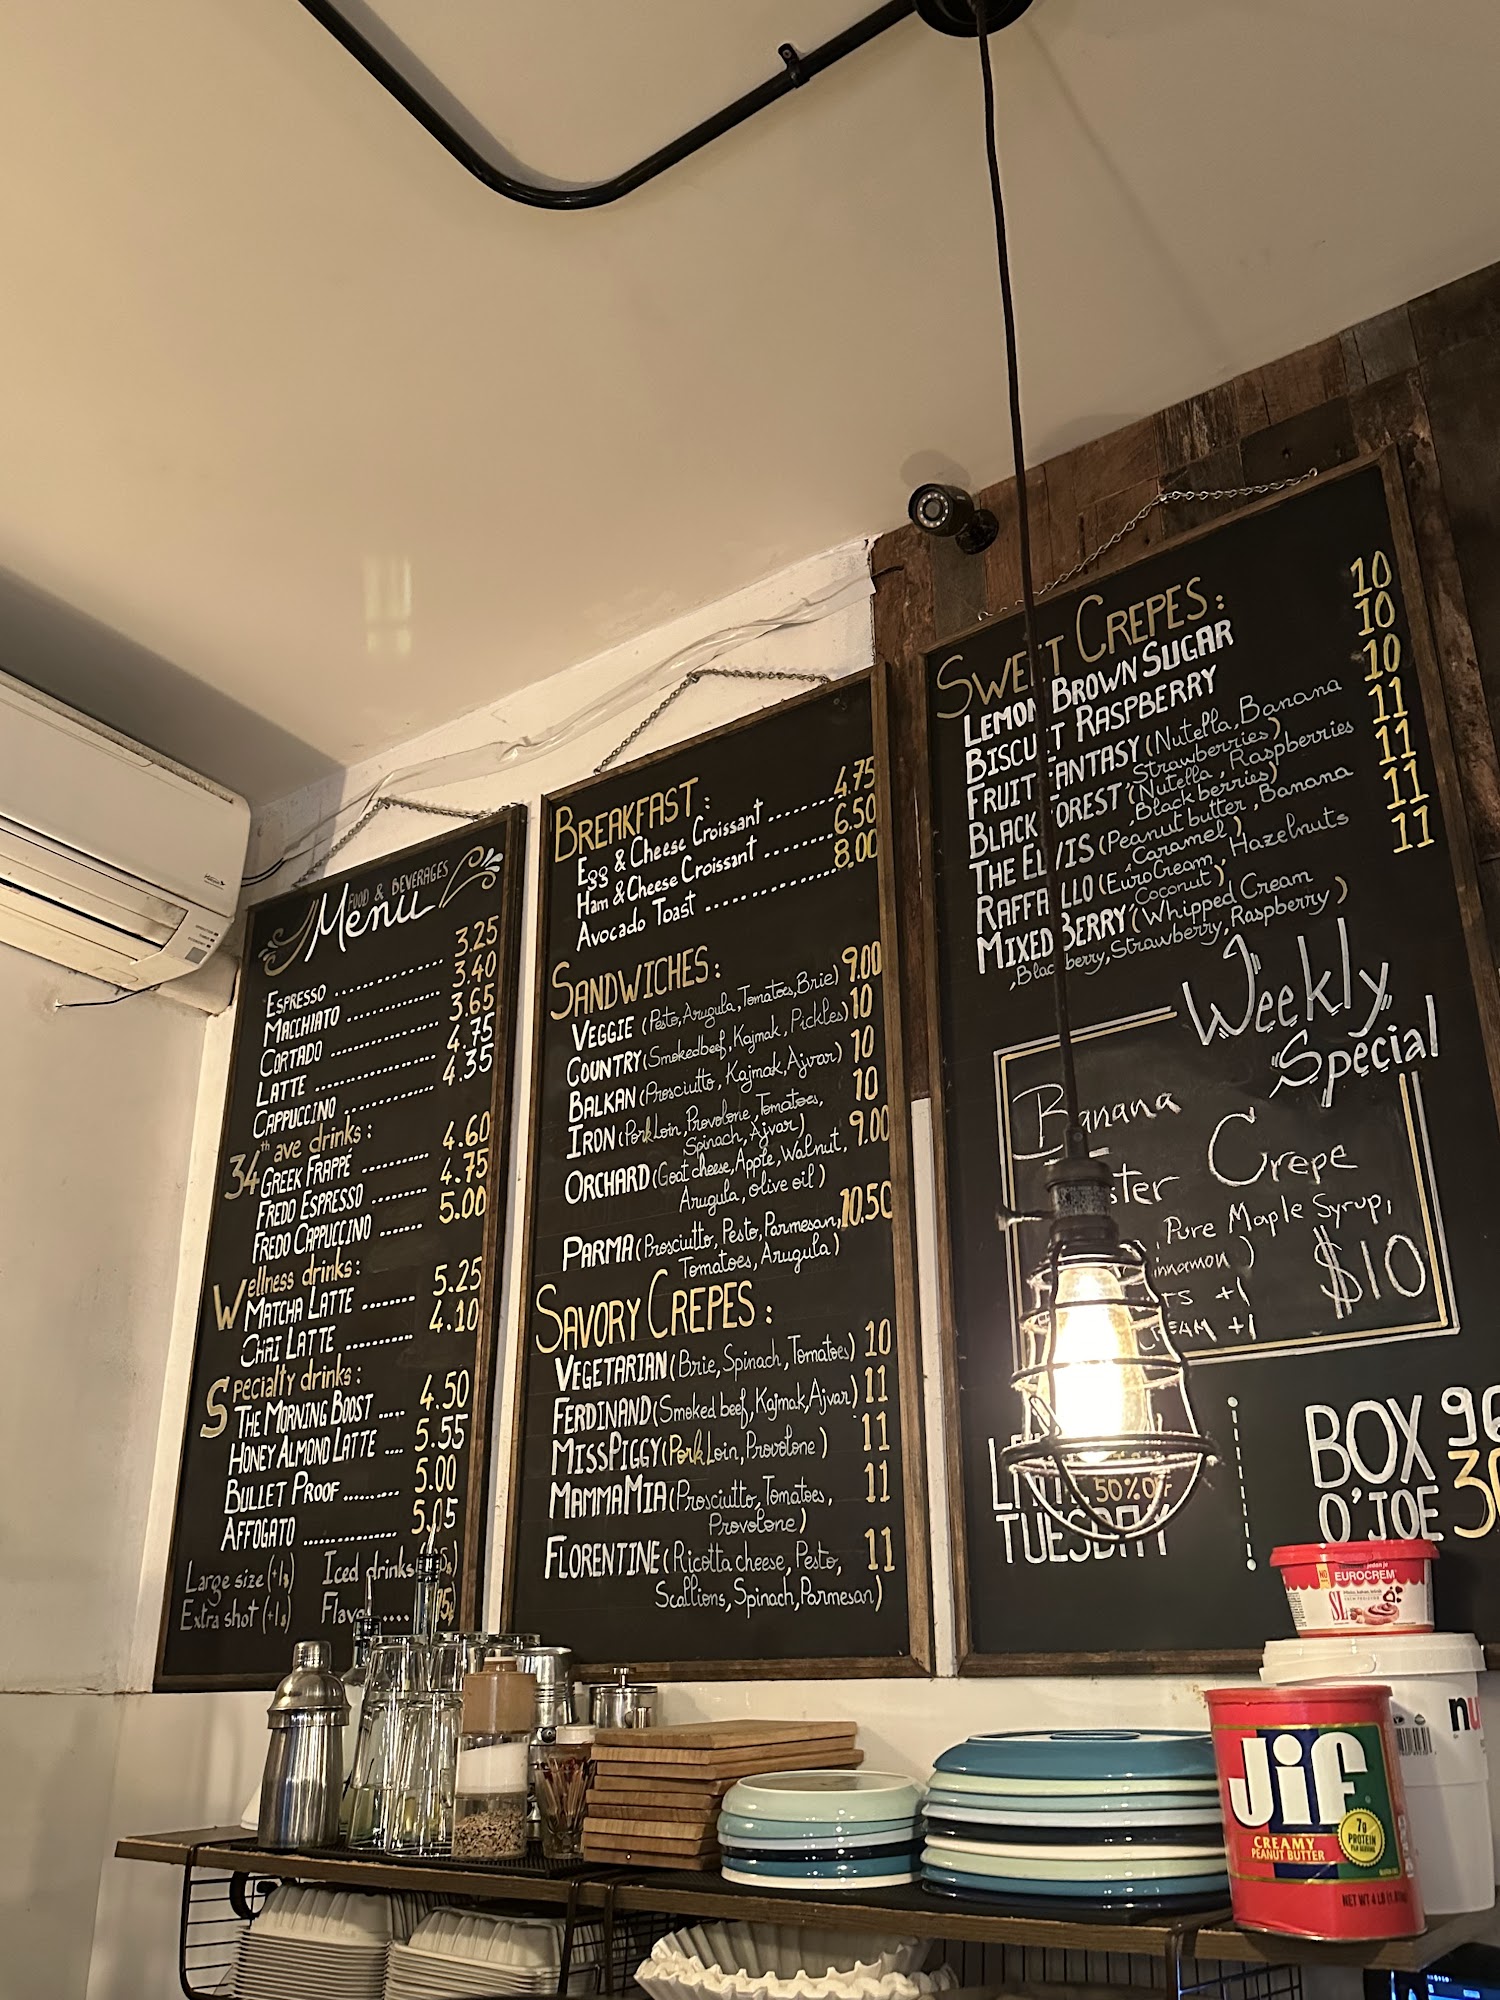 FOOD & BEVERAGES
Menu
ESPRESSO .......... 3.25
MACCHIATO .......... 3.40
CORTADO .......... 3.65
LATTE .......... 4.75
CAPPUCCINO .......... 4.35
34th ave drinks:
GREEK FRAPPÉ .......... 4.60
FREDO ESPRESSO ......... 4.75
FREDO CAPPUCCINO ...... 5.00
Wellness drinks:
MATCHA LATTE ........ 5.25
CHAI LATTE .......... 4.10
Specialty drinks:
THE MORNING BOOST ..... 4.50
HONEY ALMOND LATTE .... 5.55
BULLET PROOF......... 5.00
AFFOGATO ............... 5.05
Large size (+1$) Iced drinks
Extra shot (+1$)
BREAKFAST:
Egg & Cheese Croissant .......... 4.75
Ham & Cheese Croissant ......... 6.50
Avocado Toast ............... 8.00
SANDWICHES:
VEGGIE (Pesto, Arugula, Tomatoes, Brie) 9.00
COUNTRY (Smoked beef, Kajmak, Pickles) 10
BALKAN (Prosciutto, Kajmak, Ajvar) 10
IRON (Pork Loin, Provolone, Tomatoes, 10
Spinach, Ajvar)
ORCHARD (Goat cheese, Apple, Walnut, 9.00
Arugula, olive oil)
PARMA (Prosciutto, Pesto, Parmesan, 10.50
Tomatoes, Arugula)
SAVORY CREPES:
VEGETARIAN (Brie, Spinach, Tomatoes) 10
FERDINAND (Smoked beef, Kajmak, Ajvar) 11
MISS PIGGY (Pork Loin, Provolone) 11
MAMMA MIA (Prosciutto, Tomatoes, 11
Provolone)
FLORENTINE (Ricotta cheese, Pesto, 11
Scallions, Spinach, Parmesan)
SWEET CREPES:
LEMON BROWN SUGAR 10
BISCUIT RASPBERRY 10
FRUIT FANTASY (Nutella, Banana 10
, Strawberries)
BLACK FOREST (Nutella, Raspberries 11
, Blackberries)
THE ELVIS (Peanut butter, Banana 11
, Caramel)
RAFFALLO (EuroCream, Hazelnuts 11
, Coconut)
MIXED BERRY (Whipped Cream 11
, Blackberry, Strawberry, Raspberry)
Weekly
Special
Banana
Crepe
, Pure Maple Syrup,
$10
+1
+1
50% OFF
TUESDAY
BOX
O'JOE
EUROCREM
Jif
CREAMY
PEANUT BUTTER
7g
PROTEIN
PER SERVING
NET WT 4 LB